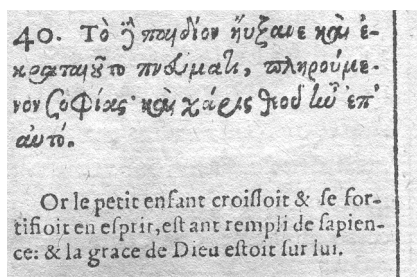 40. Τὸ δὲ παιδίον ἤυξανε καὶ ἐ-
κραταιοῦτο πνεύματι, πληρούμε-
νον σοφίας· καὶ χάρις θεοῦ ἦν ἐπ'
ἀυτό.
Or le petit enfant croiſſoit & ſe for-
tifioit en eſprit, eſtant rempli de ſapien-
ce: & la grace de Dieu eſtoit ſur lui.